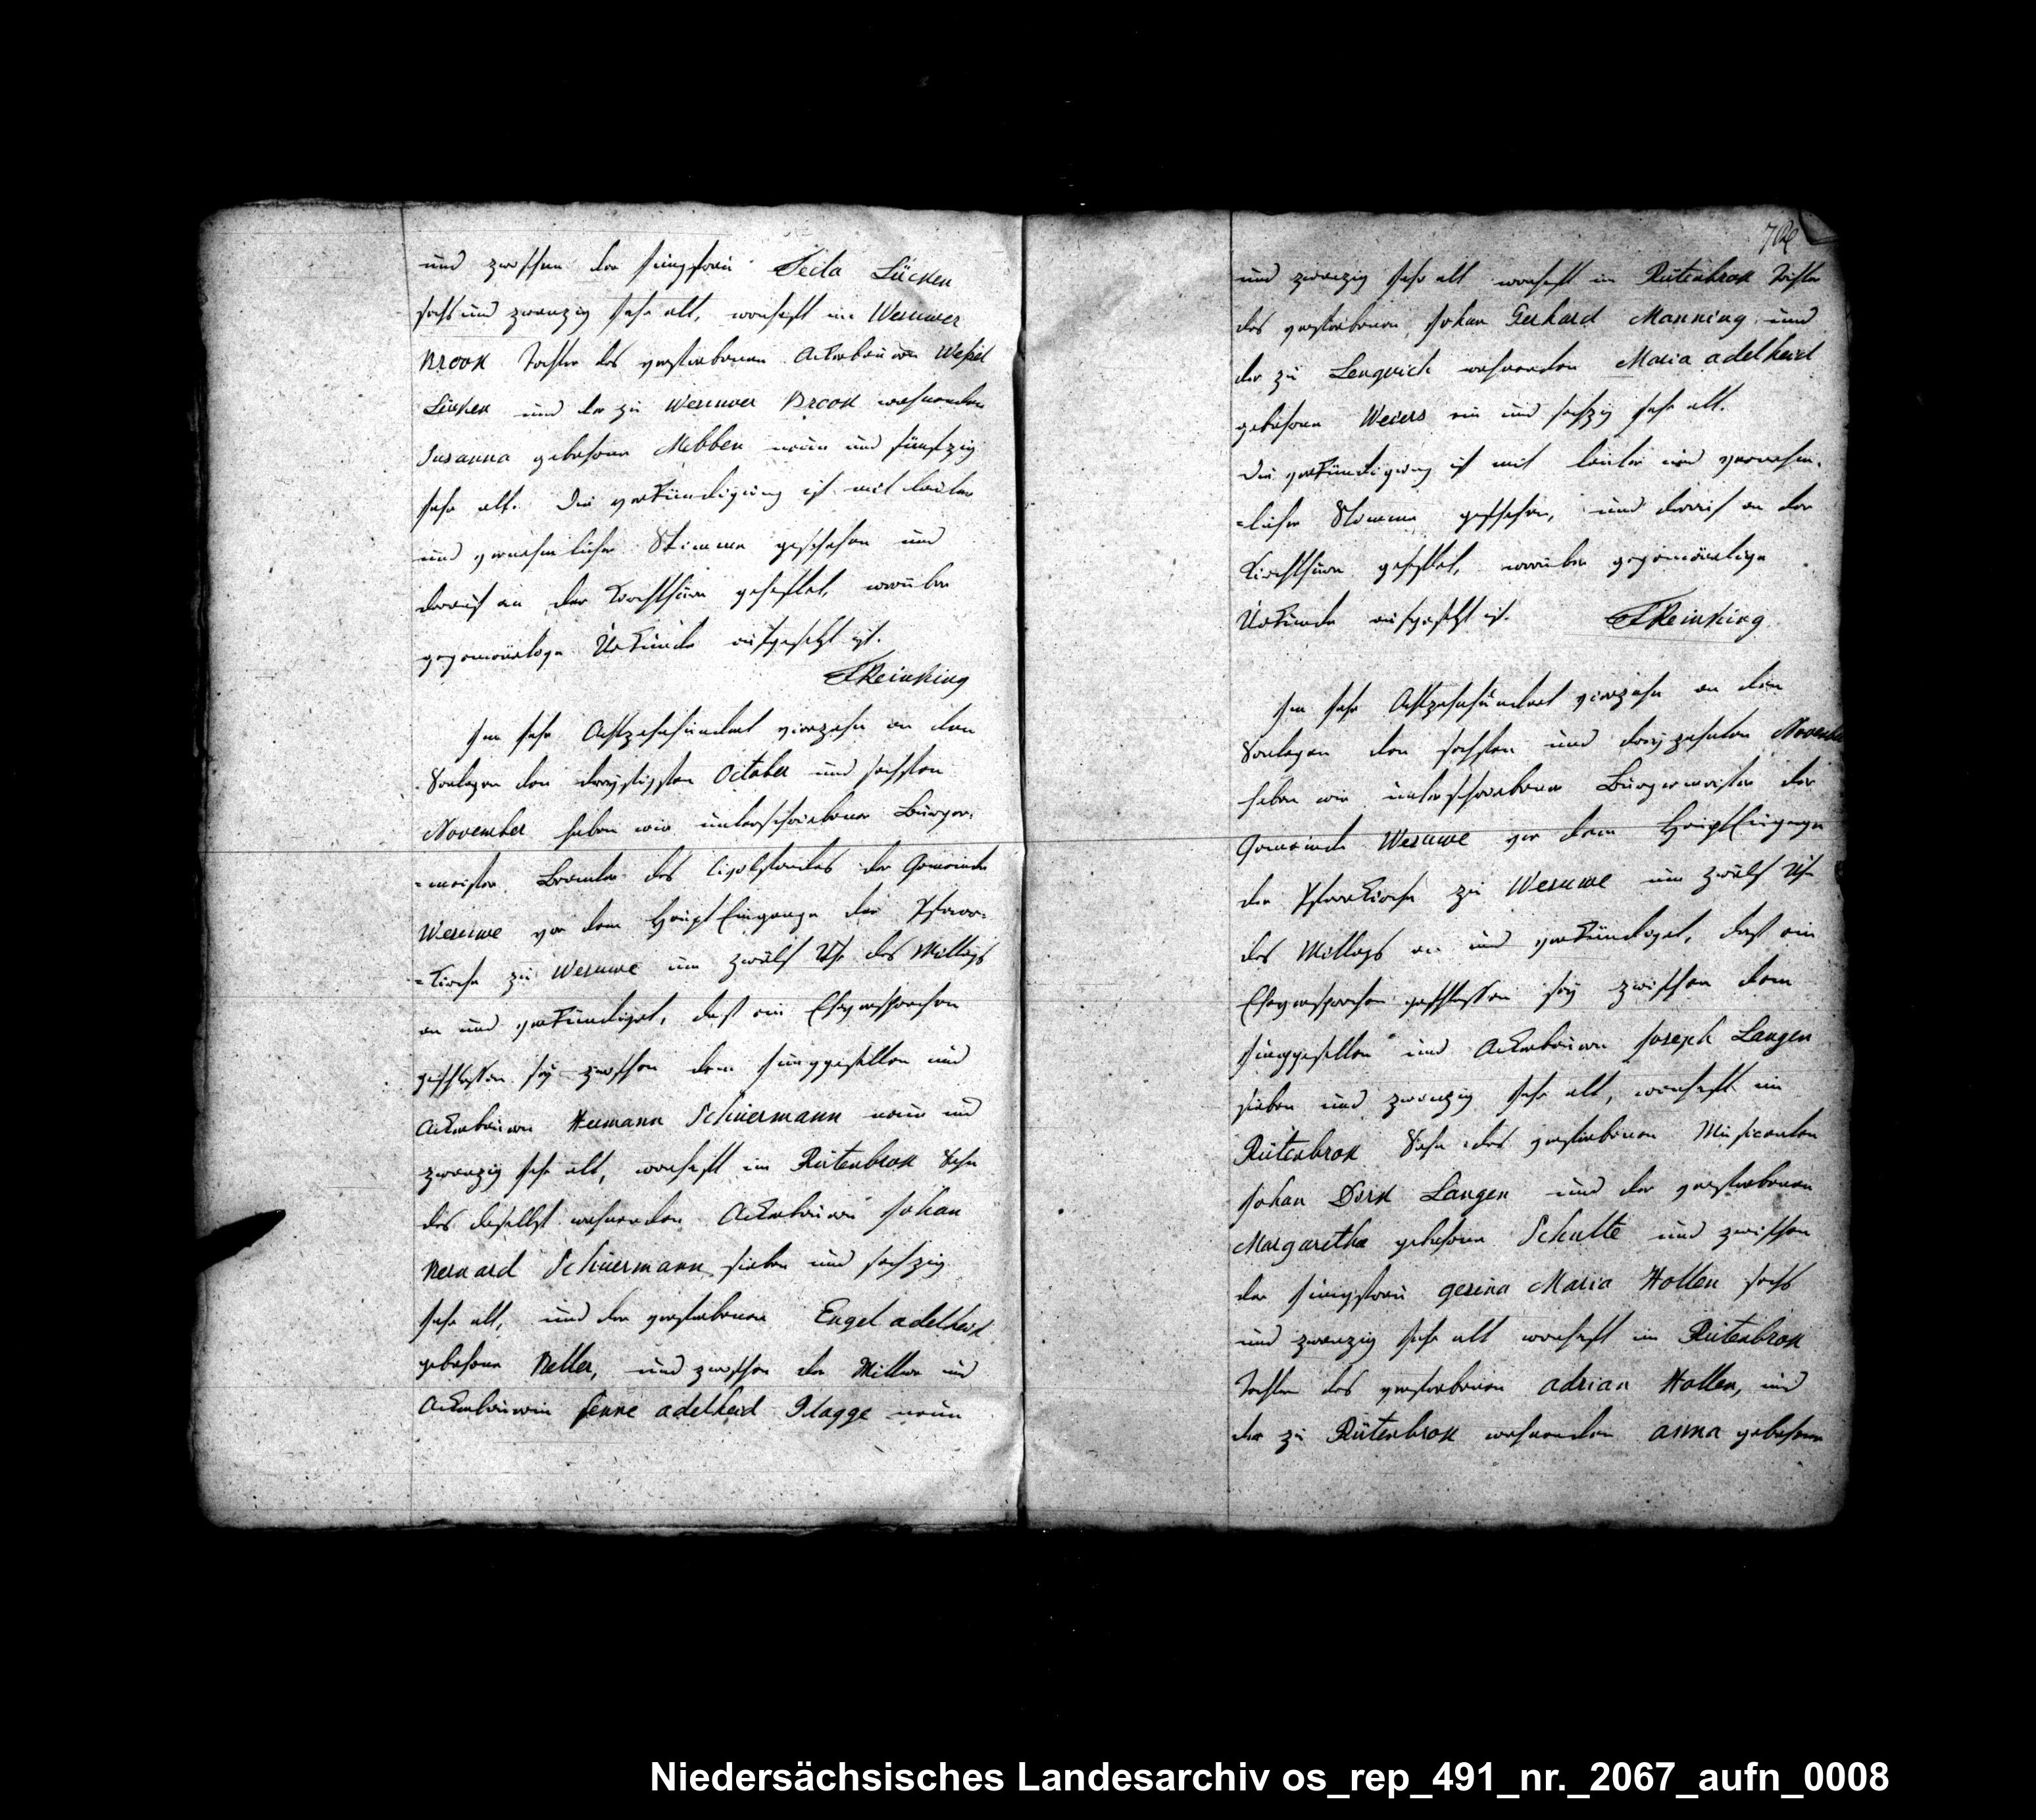 und zwischen der Jungfrau Teila Lücken
sechs und zwanzig Jahr alt, wonhaft im Wesuwer
Brook Tochter des verstorbenen Ackerbauern Weßel
Lücken und der zu Wesuwer Brook wohnenden
Susanna gebohrne Mebben neun und fünfzig
Jahr alt. Die verkündigung ist mit lauter
und vernehmlicher Stimme geschehen und
darauf an der Kirchthüre geheftet, worüber
gegenwärtige Urkunde aufgesetzt ist.
Reinking
Im Jahr Achtzehnhundert vierzehn an den
Sontagen den dreyßigsten October und sechsten
November haben wir unterschriebener Bürger-
=meister Beamter des Civilstandes der Gemeinde
Wesuwe vor dem Haupt Eingange der Pfarr-
=Kirche zu Wesuwe um zwölf Uhr des Mittags
an und verkündiget, daß ein Eheversprechen
geschlossen sey zwischen dem Junggesellen und
Ackerbauern Hermann Schüermann neun und
zwanzig Jahr alt, wonhaft im Rütenbrok Sohn
des daselbst wohnenden Ackerbauern Johan
Bernard Schüermann sieben und sechzig
Jahr alt, und der verstorbenen Engel adelheid
gebohrne Better, und zwischen der Wittwe und
Ackerbauerin Jenne adelheid Plagge neun
und zwanzig Jahr alt wonhaft im Rütenbrok Tochter
des verstorbenen Johan Gerhard Manning und
der zu Lengrich wohnenden Maria adelheid
gebohrne Weiers ein und sechzig Jahr alt.
Die verkündigung ist mit lauter und vernehm-
=licher Stimme geschehen, und darauf an der
Kirchthüre geheftet, worüber gegenwärtige
Urkunde aufgesetzt ist. Reinking
Im Jahr Achtzehnhundert vierzehn an den
Sontagen den sechsten und dreyzehnten November
haben wir unterschriebener Bürgermeister der
Gemeinde Wesuwe vor dem Haupt Eingange
der Pfarrkirche zu Wesuwe um zwölf Uhr
des Mittags an und verkündiget, daß ein
Eheversprechen geschlossen sey zwischen dem
Junggesellen und Ackerbauern Joseph Langen
sieben und zwanzig Jahr alt, wonhaft im
Rütenbrok Sohn des verstorbenen Musicanten
Johan Dirk Langen und der verstorbenen
Margaretha gebohrne Schulte und zwischen
der Jungfrau gesina Maria Hollen sechs
und zwanzig Jahr alt wonhaft im Rütenbrok
Tochter des verstorbenen adrian Hollen, und
der zu Rütenbrok wohnenden anna gebohrne
Niedersächsisches Landesarchiv os_rep_491_nr._2067_aufn_0008